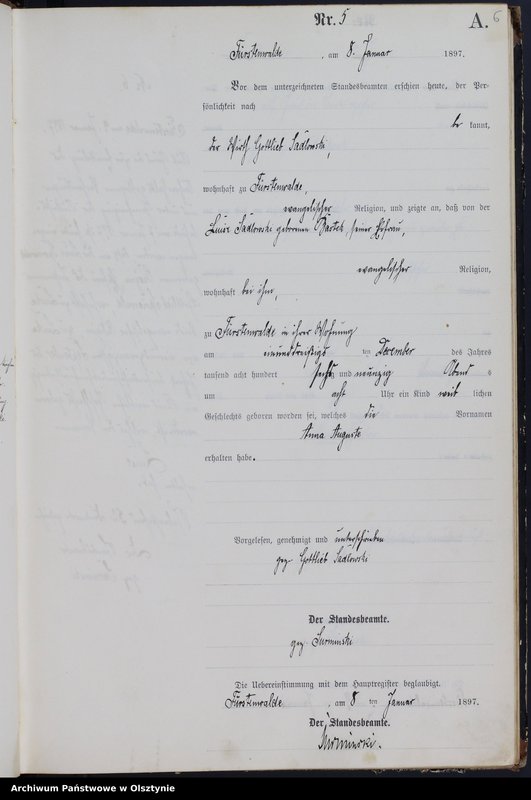 Nr. 5
A. 6
Fürstenwalde, am 8. Januar 1897.
Vor dem unterzeichneten Standesbeamten erschien heute, der Per-
sönlichkeit nach
be kannt,
der Wirth Gottlieb Sadlowski,
wohnhaft zu Fürstenwalde,
evangelischer Religion, und zeigte an, daß von der
Luise Sadlowski geborenen Bartek, seiner Ehefrau,
evangelischer Religion,
wohnhaft bei ihm,
zu Fürstenwalde in ihrer Wohnung
am neunundzwanzigs ten December des Jahres
tausend acht hundert sechs und neunzig Abend s
um acht Uhr ein Kind weib lichen
Geschlechts geboren worden sei, welches die Vornamen
Anna Auguste
erhalten habe.
Vorgelesen, genehmigt und unterschrieben
gez. Gottlieb Sadlowski
Der Standesbeamte.
gez.
Die Uebereinstimmung mit dem Hauptregister beglaubigt.
Fürstenwalde, am 8 ten Januar 1897.
Der Standesbeamte.
Archiwum Państwowe w Olsztynie